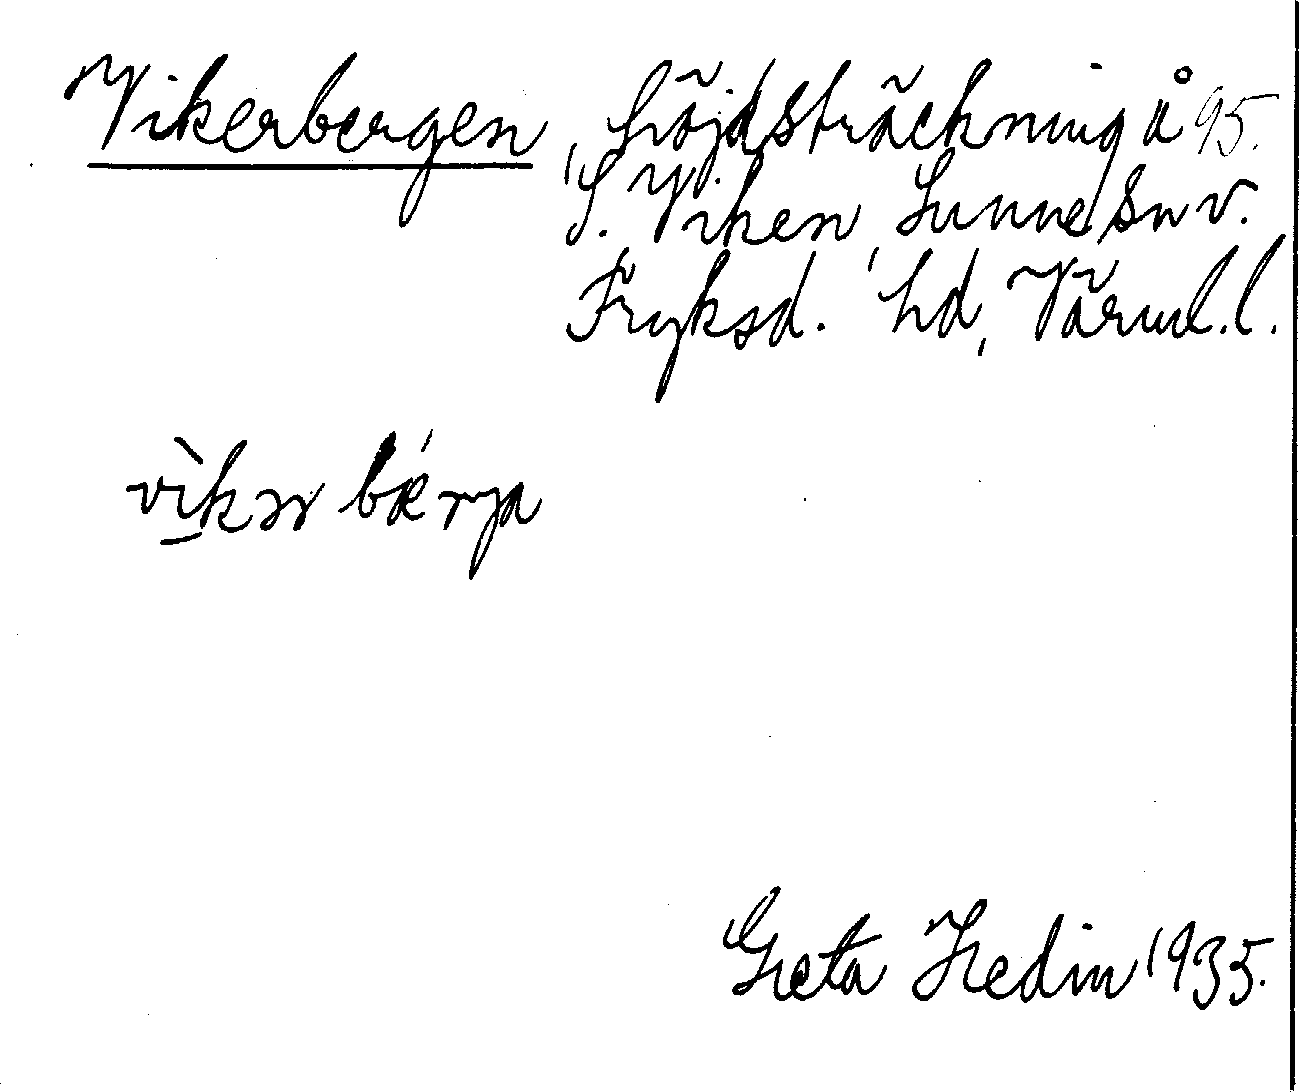 Vikerbergen, höjdsträckning å 95.
S. Viken, Sunne sn v.
Fryksd. hd, Värml.l.
vìkər bǽrja
Greta Hedin 1935.